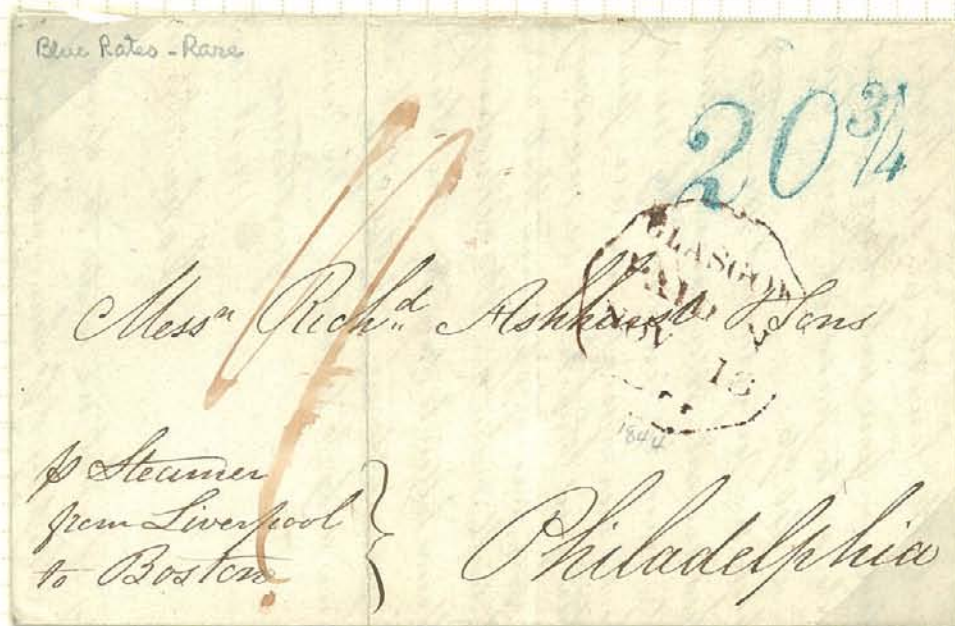 Blue Rates - Rare
20 3/4
GLASGOW
PAID
NOV 18
1844
Messrs Richd Ashhurst & Sons
p Steamer
from Liverpool
to Boston
Philadelphia